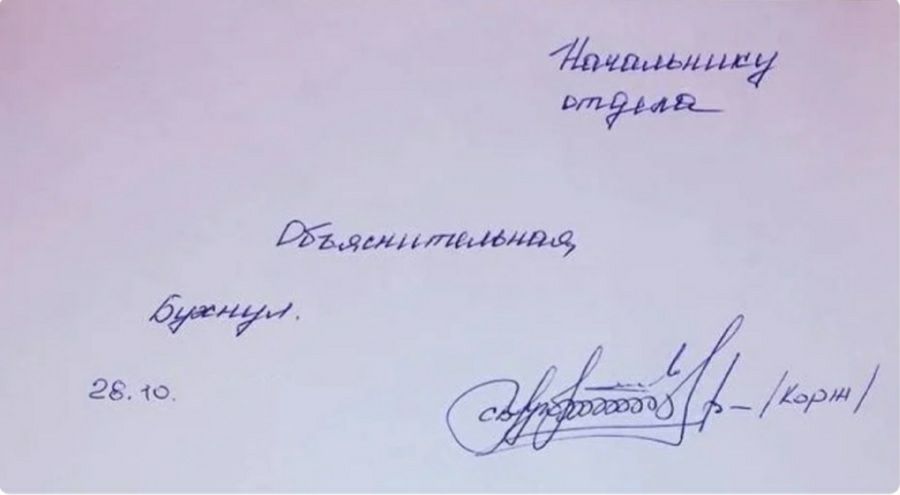 Начальнику
отдела
Объяснительная
Бухнул.
28.10.
/Корж/